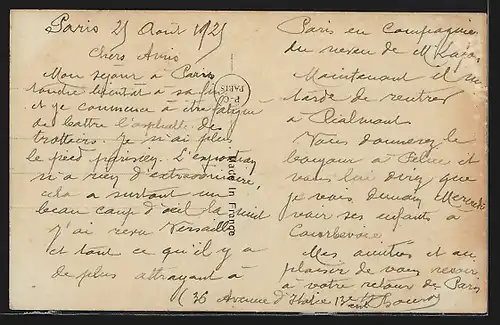 Paris 25 Août 1925
Chers Amis
Mon séjour à Paris
touche bientôt à sa fin
et je commence à être fatigué
de battre l'asphalte de
trottoirs. Je n'ai plus
le pied parisien. L'exposition
n'a rien d'extraordinaire,
cela a surtout un
beau coup d'oeil la nuit
j'ai revu Versailles
et tout ce qu'il y a
de plus attrayant à
Paris en compagnie
du neveu de M
Maintenant il me
tarde de rentrer
à Réalmont
Vous donnerez le
bonjour à et
vous lui direz que
je vais demain Mercredi
voir ses enfants à
Courbevoie
Mes amitiés et au
plaisir de vous revoir
à votre retour de Paris
36 Avenue d'Italie 13e
P.C.
PARIS
Made in France